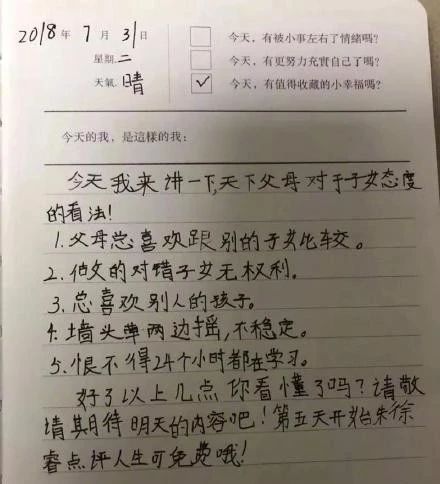 2018年 7月 31日
星期.二
天氣.晴
今天，有被小事左右了情緒嗎?
今天，有更努力充實自己了嗎?
今天，有值得收藏的小幸福嗎?
今天的我，是這樣的我：
今天我来讲一下,天下父母对于子女态度
的看法!
1.父母总喜欢跟别的子女比较。
2.他的对错子女无权利。
3.总喜欢别人的孩子。
4.墙头草两边摇,不稳定。
5.恨不得24个小时都在学习。
好了以上几点你看懂了吗?请敬
请期待明天的内容吧!第五天开始朱徐
睿点评人生可免费哦!